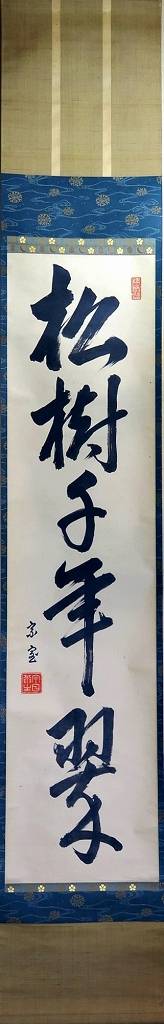 松樹千年翠
宗室